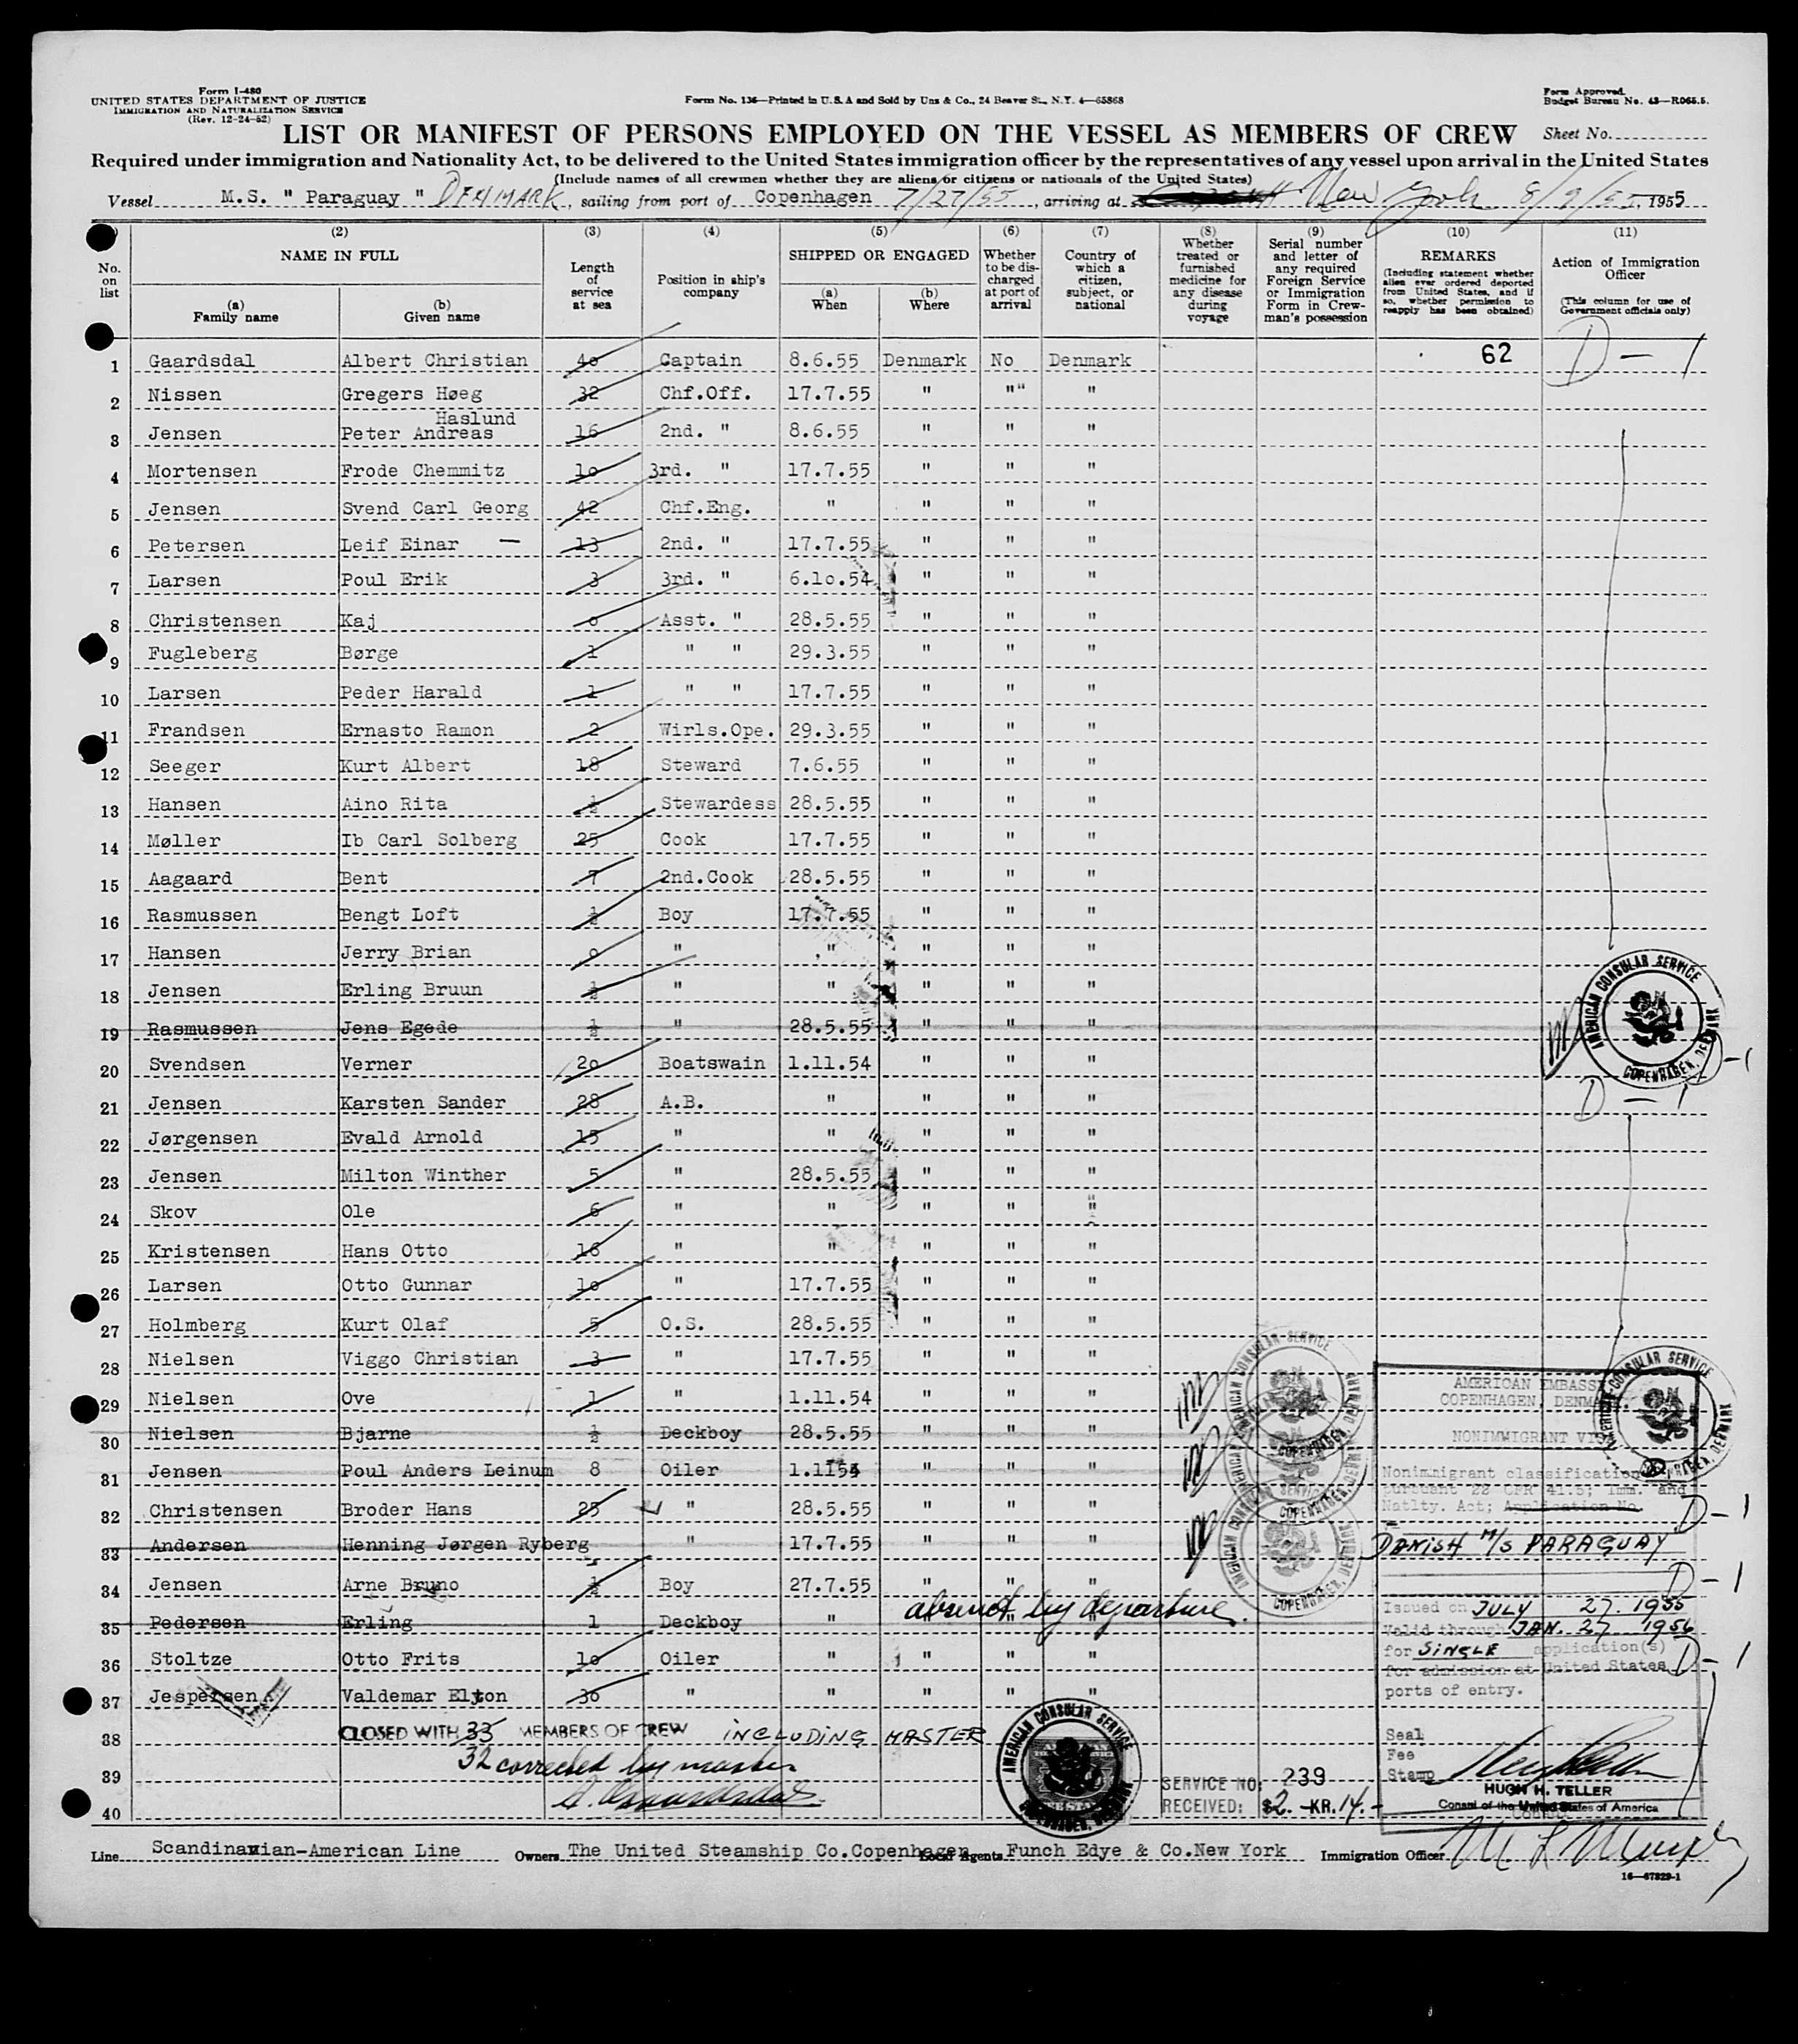 Form I-480
UNITED STATES DEPARTMENT OF JUSTICE
IMMIGRATION AND NATURALIZATION SERVICE
(Rev. 12-24-52)
Form No. 136—Printed in U.S.A and Sold by Unz & Co., 24 Beaver St., N.Y. 4—65868
Form Approved.
Budget Bureau No. 43—R065.5.
LIST OR MANIFEST OF PERSONS EMPLOYED ON THE VESSEL AS MEMBERS OF CREW Sheet No.
Required under immigration and Nationality Act, to be delivered to the United States immigration officer by the representatives of any vessel upon arrival in the United States
(Include names of all crewmen whether they are aliens or citizens or nationals of the United States)
Vessel M.S. " Paraguay " DENMARK, sailing from port of Copenhagen 7/27/55, arriving at New York 8/9/55, 1955
(2) (3) (4) (5) (6) (7) (8) (9) (10) (11)
No. on list
NAME IN FULL
(a) Family name
(b) Given name
Length of service at sea
Position in ship's company
SHIPPED OR ENGAGED
(a) When
(b) Where
Whether to be discharged at port of arrival
Country of which a citizen, subject, or national
Whether treated or furnished medicine for any disease during voyage
Serial number and letter of any required Foreign Service or Immigration Form in Crewman's possession
REMARKS
(Including statement whether alien ever ordered deported from United States, and if so, whether permission to reapply has been obtained)
Action of Immigration Officer
(This column for use of Government officials only)
1 Gaardsdal Albert Christian 40 Captain 8.6.55 Denmark No Denmark 62 D-1
2 Nissen Gregers Høeg 32 Chf.Off. 17.7.55 " "" "
Haslund
3 Jensen Peter Andreas 16 2nd. " 8.6.55 " " "
4 Mortensen Frode Chemmitz 10 3rd. " 17.7.55 " " "
5 Jensen Svend Carl Georg 42 Chf.Eng. " " " "
6 Petersen Leif Einar — 13 2nd. " 17.7.55 " " "
7 Larsen Poul Erik 3 3rd. " 6.10.54 " " "
8 Christensen Kaj 0 Asst. " 28.5.55 " " "
9 Fugleberg Børge 1 " " 29.3.55 " " "
10 Larsen Peder Harald 1 " " 17.7.55 " " "
11 Frandsen Ernasto Ramon 2 Wirls.Ope. 29.3.55 " " "
12 Seeger Kurt Albert 18 Steward 7.6.55 " " "
13 Hansen Aino Rita ½ Stewardess 28.5.55 " " "
14 Møller Ib Carl Solberg 25 Cook 17.7.55 " " "
15 Aagaard Bent 7 2nd.Cook 28.5.55 " " "
16 Rasmussen Bengt Loft ½ Boy 17.7.55 " " "
17 Hansen Jerry Brian 0 " " " " "
18 Jensen Erling Bruun ½ " " " " "
19 Rasmussen Jens Egede ½ " 28.5.55 " " "
20 Svendsen Verner 20 Boatswain 1.11.54 " " " D-1
21 Jensen Karsten Sander 28 A.B. " " " " D-1
22 Jørgensen Evald Arnold 15 " " " " "
23 Jensen Milton Winther 5 " 28.5.55 " " "
24 Skov Ole 6 " " " " "
25 Kristensen Hans Otto 16 " " " " "
26 Larsen Otto Gunnar 10 " 17.7.55 " " "
27 Holmberg Kurt Olaf 5 O.S. 28.5.55 " " "
28 Nielsen Viggo Christian 3 " 17.7.55 " " "
29 Nielsen Ove 1 " 1.11.54 " " "
30 Nielsen Bjarne ½ Deckboy 28.5.55 " " "
31 Jensen Poul Anders Leinum 8 Oiler 1.1154 " " "
32 Christensen Broder Hans 25 " 28.5.55 " " " D-1
33 Andersen Henning Jørgen Ryberg " 17.7.55 " " "
34 Jensen Arne Bruno ½ Boy 27.7.55 " " " D-1
35 Pedersen Erling 1 Deckboy " absent by departure.
36 Stoltze Otto Frits 10 Oiler " " " " D-1
37 Jespersen Valdemar Elton 30 " " " " "
38 CLOSED WITH 33 MEMBERS OF CREW INCLUDING MASTER
39 32 corrected by master
40 A. Gaardsdal.
AMERICAN CONSULAR SERVICE COPENHAGEN, DENMARK
AMERICAN CONSULAR SERVICE COPENHAGEN, DENMARK
AMERICAN CONSULAR SERVICE COPENHAGEN, DENMARK
AMERICAN CONSULAR SERVICE COPENHAGEN, DENMARK
AMERICAN CONSULAR SERVICE COPENHAGEN, DENMARK
AMERICAN CONSULAR SERVICE COPENHAGEN, DENMARK
AMERICAN EMBASSY
COPENHAGEN, DENMARK
NONIMMIGRANT VISA
Nonimmigrant classification
pursuant 22 CFR 41.5; Imm. and
Natlty. Act; Application No.
DANISH M/S PARAGUAY
Issued on JULY 27. 1955
Valid through JAN. 27 1956
for SINGLE application(s)
for admission at United States
ports of entry.
Seal
Fee
Stamp
HUGH H. TELLER
Consul of the United States of America
SERVICE NO: 239
RECEIVED: $2.-KR.14.-
Line Scandinavian-American Line Owners The United Steamship Co.Copenhagen Local Agents Funch Edye & Co.New York Immigration Officer
16—67329-1